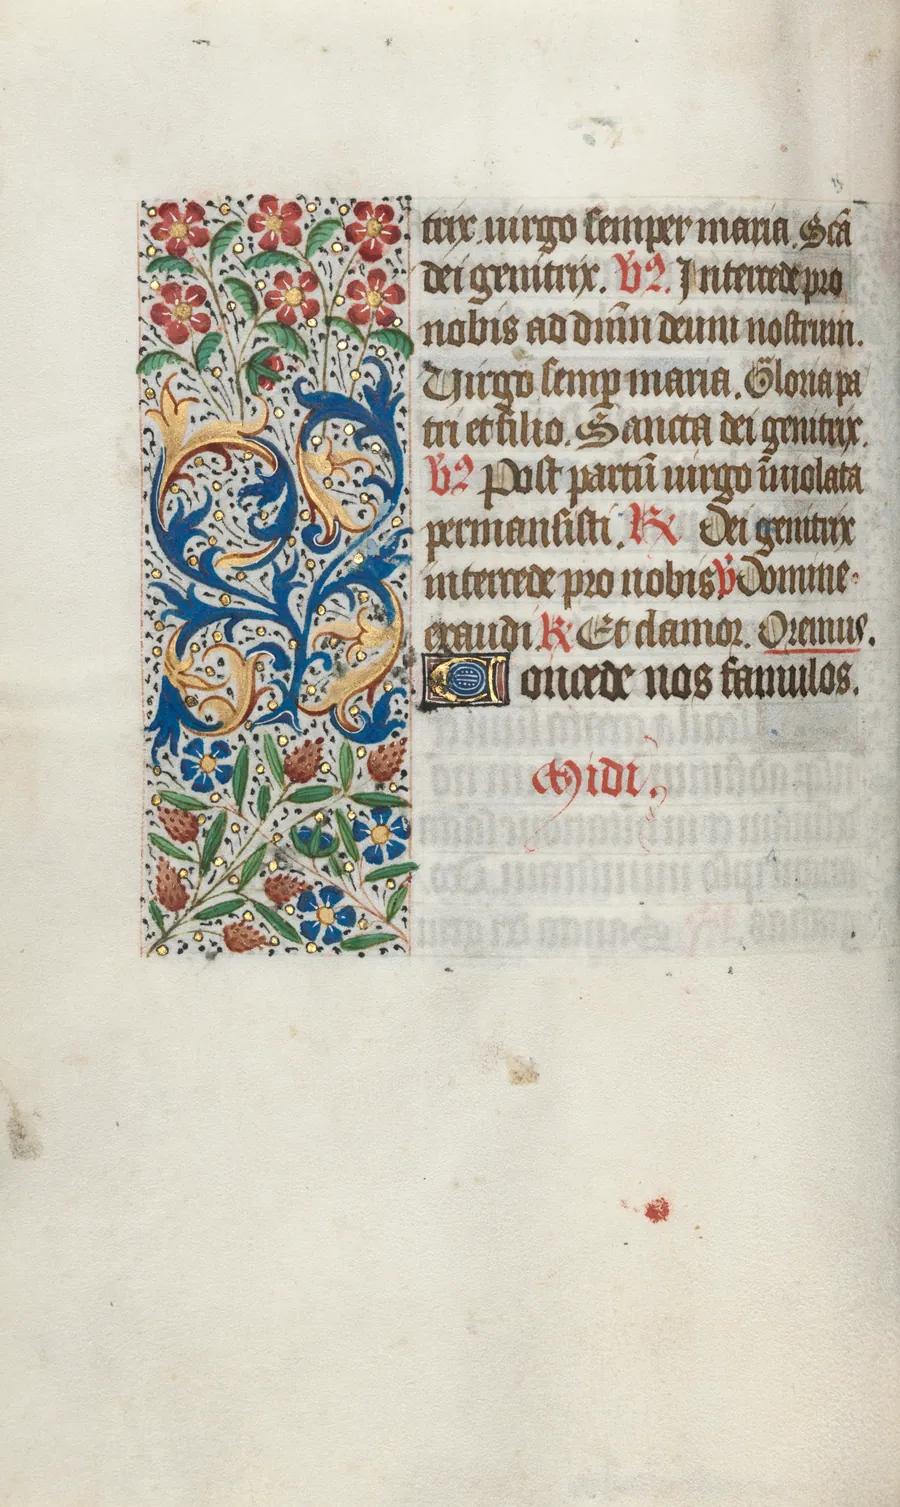 trix uirgo semper maria. Scā
dei genitrix. V̄. Intercede pro
nobis ad dn̄m deum nostrum.
Virgo semp maria. Gloria pa
tri et filio. Sancta dei genitrix.
V̄. Post partū uirgo īuiolata
permansisti. R Dei genitrix
intercede pro nobis V Domine
exaudi R Et clamor. Oremus.
Concede nos famulos.
Midi.